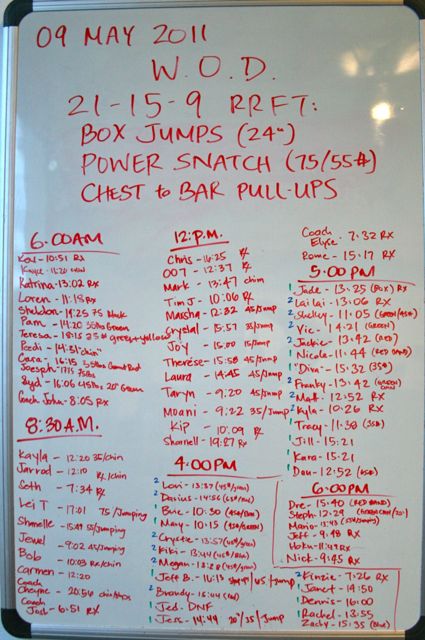 09 MAY 2011
W.O.D.
21-15-9 RRFT:
BOX JUMPS (24")
POWER SNATCH (75/55#)
CHEST to BAR PULL-UPS
6:00AM
Kai - 10:51 RX
Kayce - 11:20 chin
Katrina - 13:02 RX
Loren - 11:18 RX
Sheldon - 14:25 75 black
Pam - 14:20 55lbs Green
Teresa - 18:15 35# green+yellow
Pedi - 14:51 "chin"
Cara - 16:15
Joesph - 17:15 75lbs
Syd - 16:06 45lbs, 20" Green
Coach John - 8:05 RX
8:30A.M.
Kayla - 12:20 35/chin
Jarrod - 12:10 RX/chin
Seth - 7:34 RX
Lei T - 17:01 75/Jumping
Shanelle - 15:49 55/Jumping
Jewel - 9:02 45/Jumping
Bob - 10:03 RX/chin
Carmen - 12:20
Coach Cheyne - 20:56
Coach Jad - 6:51 RX
12:P.M.
Chris - 16:25 RX
007 - 12:37 RX
Mark - 13:47 chin
Tim J - 10:06 RX
Maisha - 12:32 45/Jump
Crystal - 15:57 35/Jump
Joy - 15:00 15/Jump
Therese - 15:58 45/Jump
Laura - 14:45 45/Jump
Taryn - 9:20 45/Jump
Moani - 9:22 35/Jump
Kip - 10:09 RX
Shanell - 19:27 RX
4:00PM
2 Lori - 13:37
2 Darius - 14:56
1 Bric - 10:30
1 May - 10:15
2 Crystle - 13:57
2 Kiki - 13:44
2 Megan - 13:28
1 Jeff B. - 16:13 /Jump
2 Brandy - 16:44
1 Jed - DNF
1 Jess - 14:49 20"/35/Jump
Coach Elyse - 7:32 RX
Rome - 15:17 RX
5:00 PM
1 Jade - 13:25 RX
2 Lai Lai - 13:06 RX
2 Shelley - 11:05
2 Vic - 14:21 (GREEN)
2 Jackie - 13:42 (RED)
1 Nicole - 11:44 (RED BAND)
1 "Diva" - 15:32 (35#)
2 Franky - 13:42
2 Matt - 12:52 RX
2 Kyla - 10:26 RX
1 Tracy - 11:38 (35#)
1 Jill - 15:21
1 Kara - 15:21
1 Dau - 12:52
6:00 PM
Dre - 15:40 (RED BAND)
Steph - 12:29
Mario - 13:43
Jeff - 9:48 RX
Hoku - 11:49 RX
1 Nick - 9:45 RX
2 Kinzie - 7:26 RX
1 Janet - 14:50
1 Dennis - 16:00
1 Rachel - 13:55
Zachy - 15:35 (BLUE)